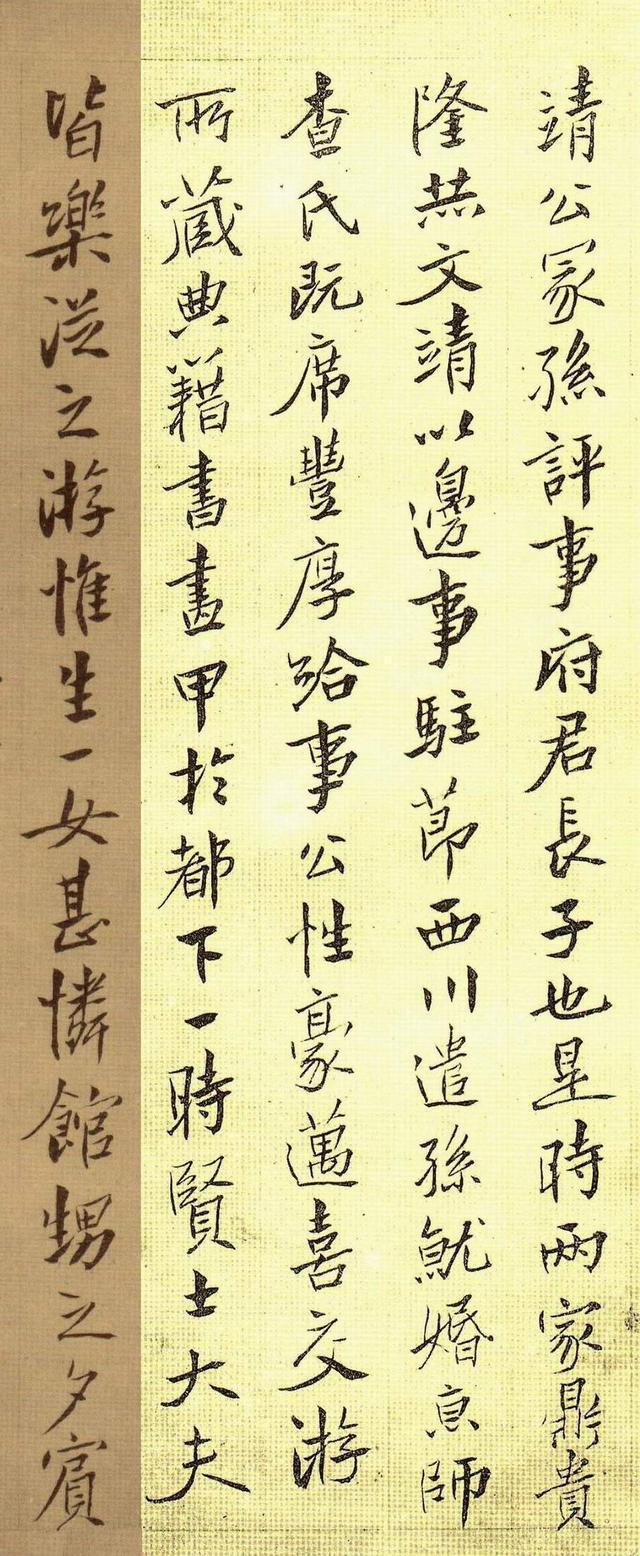 靖公冢孫評事府君長子也是時兩家鼎貴
隆赫文靖以邊事駐節西川遣孫就婚京師
查氏既席豐厚給事公性豪邁喜交游
所藏典籍書畫甲於都下一時賢士大夫
皆樂從之游惟生一女甚憐館甥之夕賓